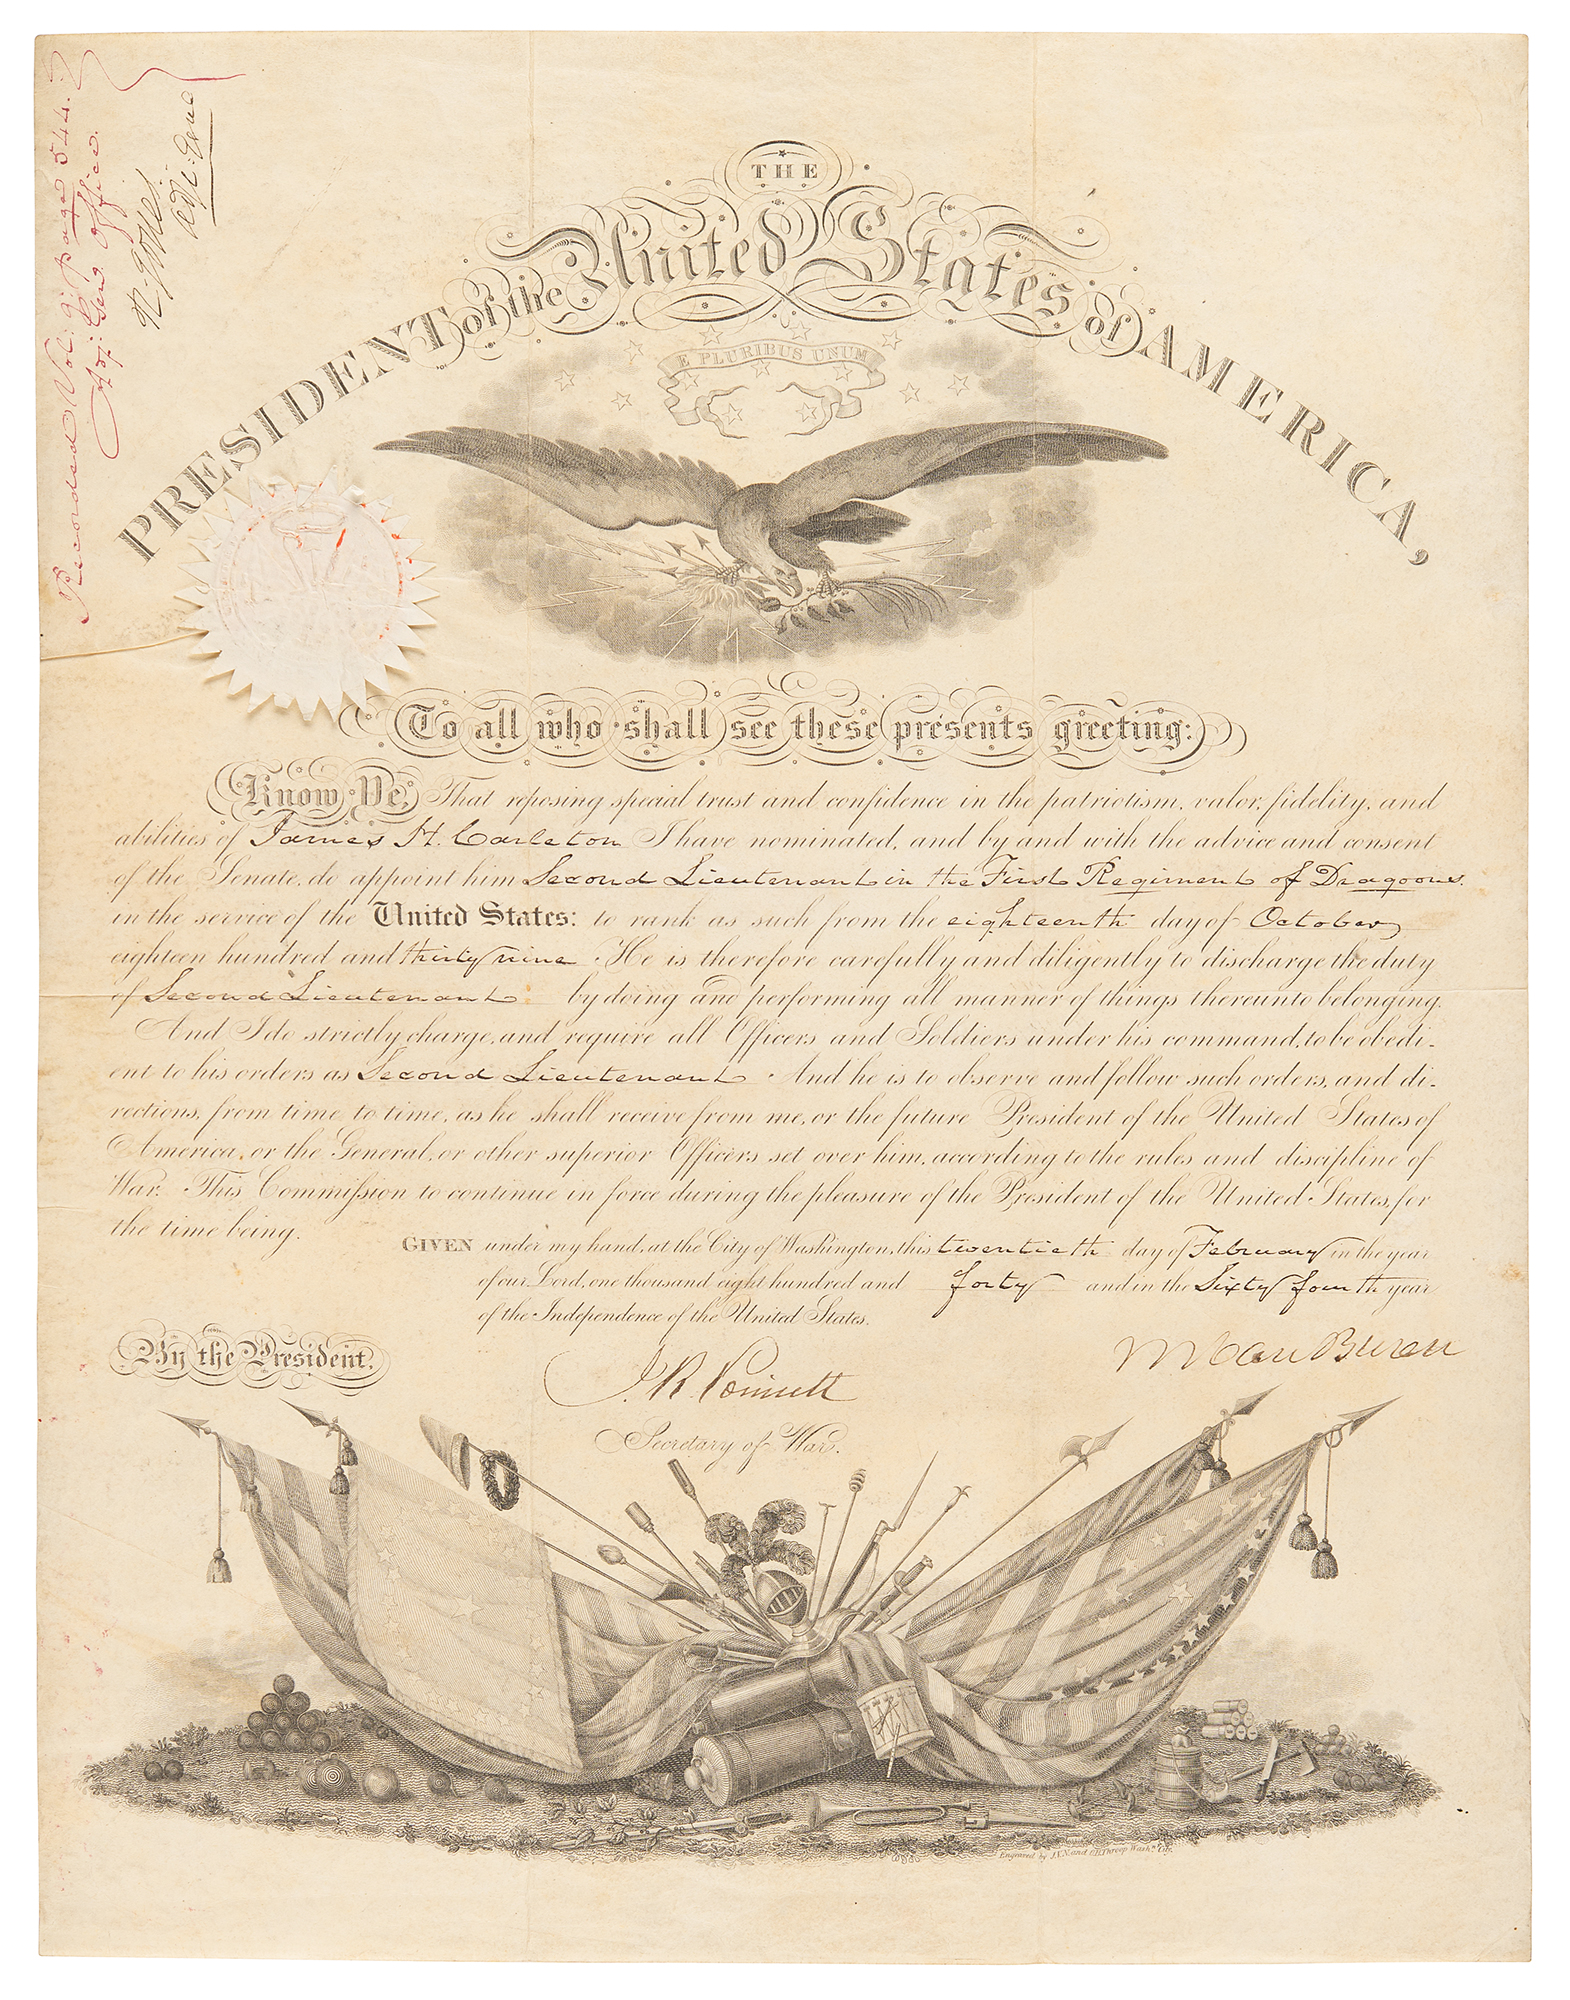 Recorded Vol: 9. page 544.
Adj: Gen Office.
R. Jones.
Adj: Genl
THE
PRESIDENT of the United States of AMERICA,
E PLURIBUS UNUM
To all who shall see these presents greeting:
Know Ye, That reposing special trust and confidence in the patriotism, valor, fidelity, and
abilities of James H. Carleton I have nominated, and by and with the advice and consent
of the Senate, do appoint him Second Lieutenant in the First Regiment of Dragoons.
in the service of the United States: to rank as such from the eighteenth day of October
eighteen hundred and thirty nine. He is therefore carefully and diligently to discharge the duty
of Second Lieutenant by doing and performing all manner of things thereunto belonging.
And I do strictly charge, and require all Officers and Soldiers under his command, to be obedi-
ent to his orders as Second Lieutenant. And he is to observe and follow such orders, and di-
rections, from time, to time, as he shall receive from me, or the future President of the United States of
America, or the General, or other superior Officers set over him, according to the rules and discipline of
War. This Commission to continue in force during the pleasure of the President of the United States, for
the time being.
GIVEN under my hand, at the City of Washington, this twentieth day of February in the year
of our Lord, one thousand eight hundred and forty and in the Sixty fourth year
of the Independence of the United States.
By the President.
M Van Buren
J. R. Poinsett
Secretary of War.
Engraved by J.V.N. and O.H. Throop Washn. City.